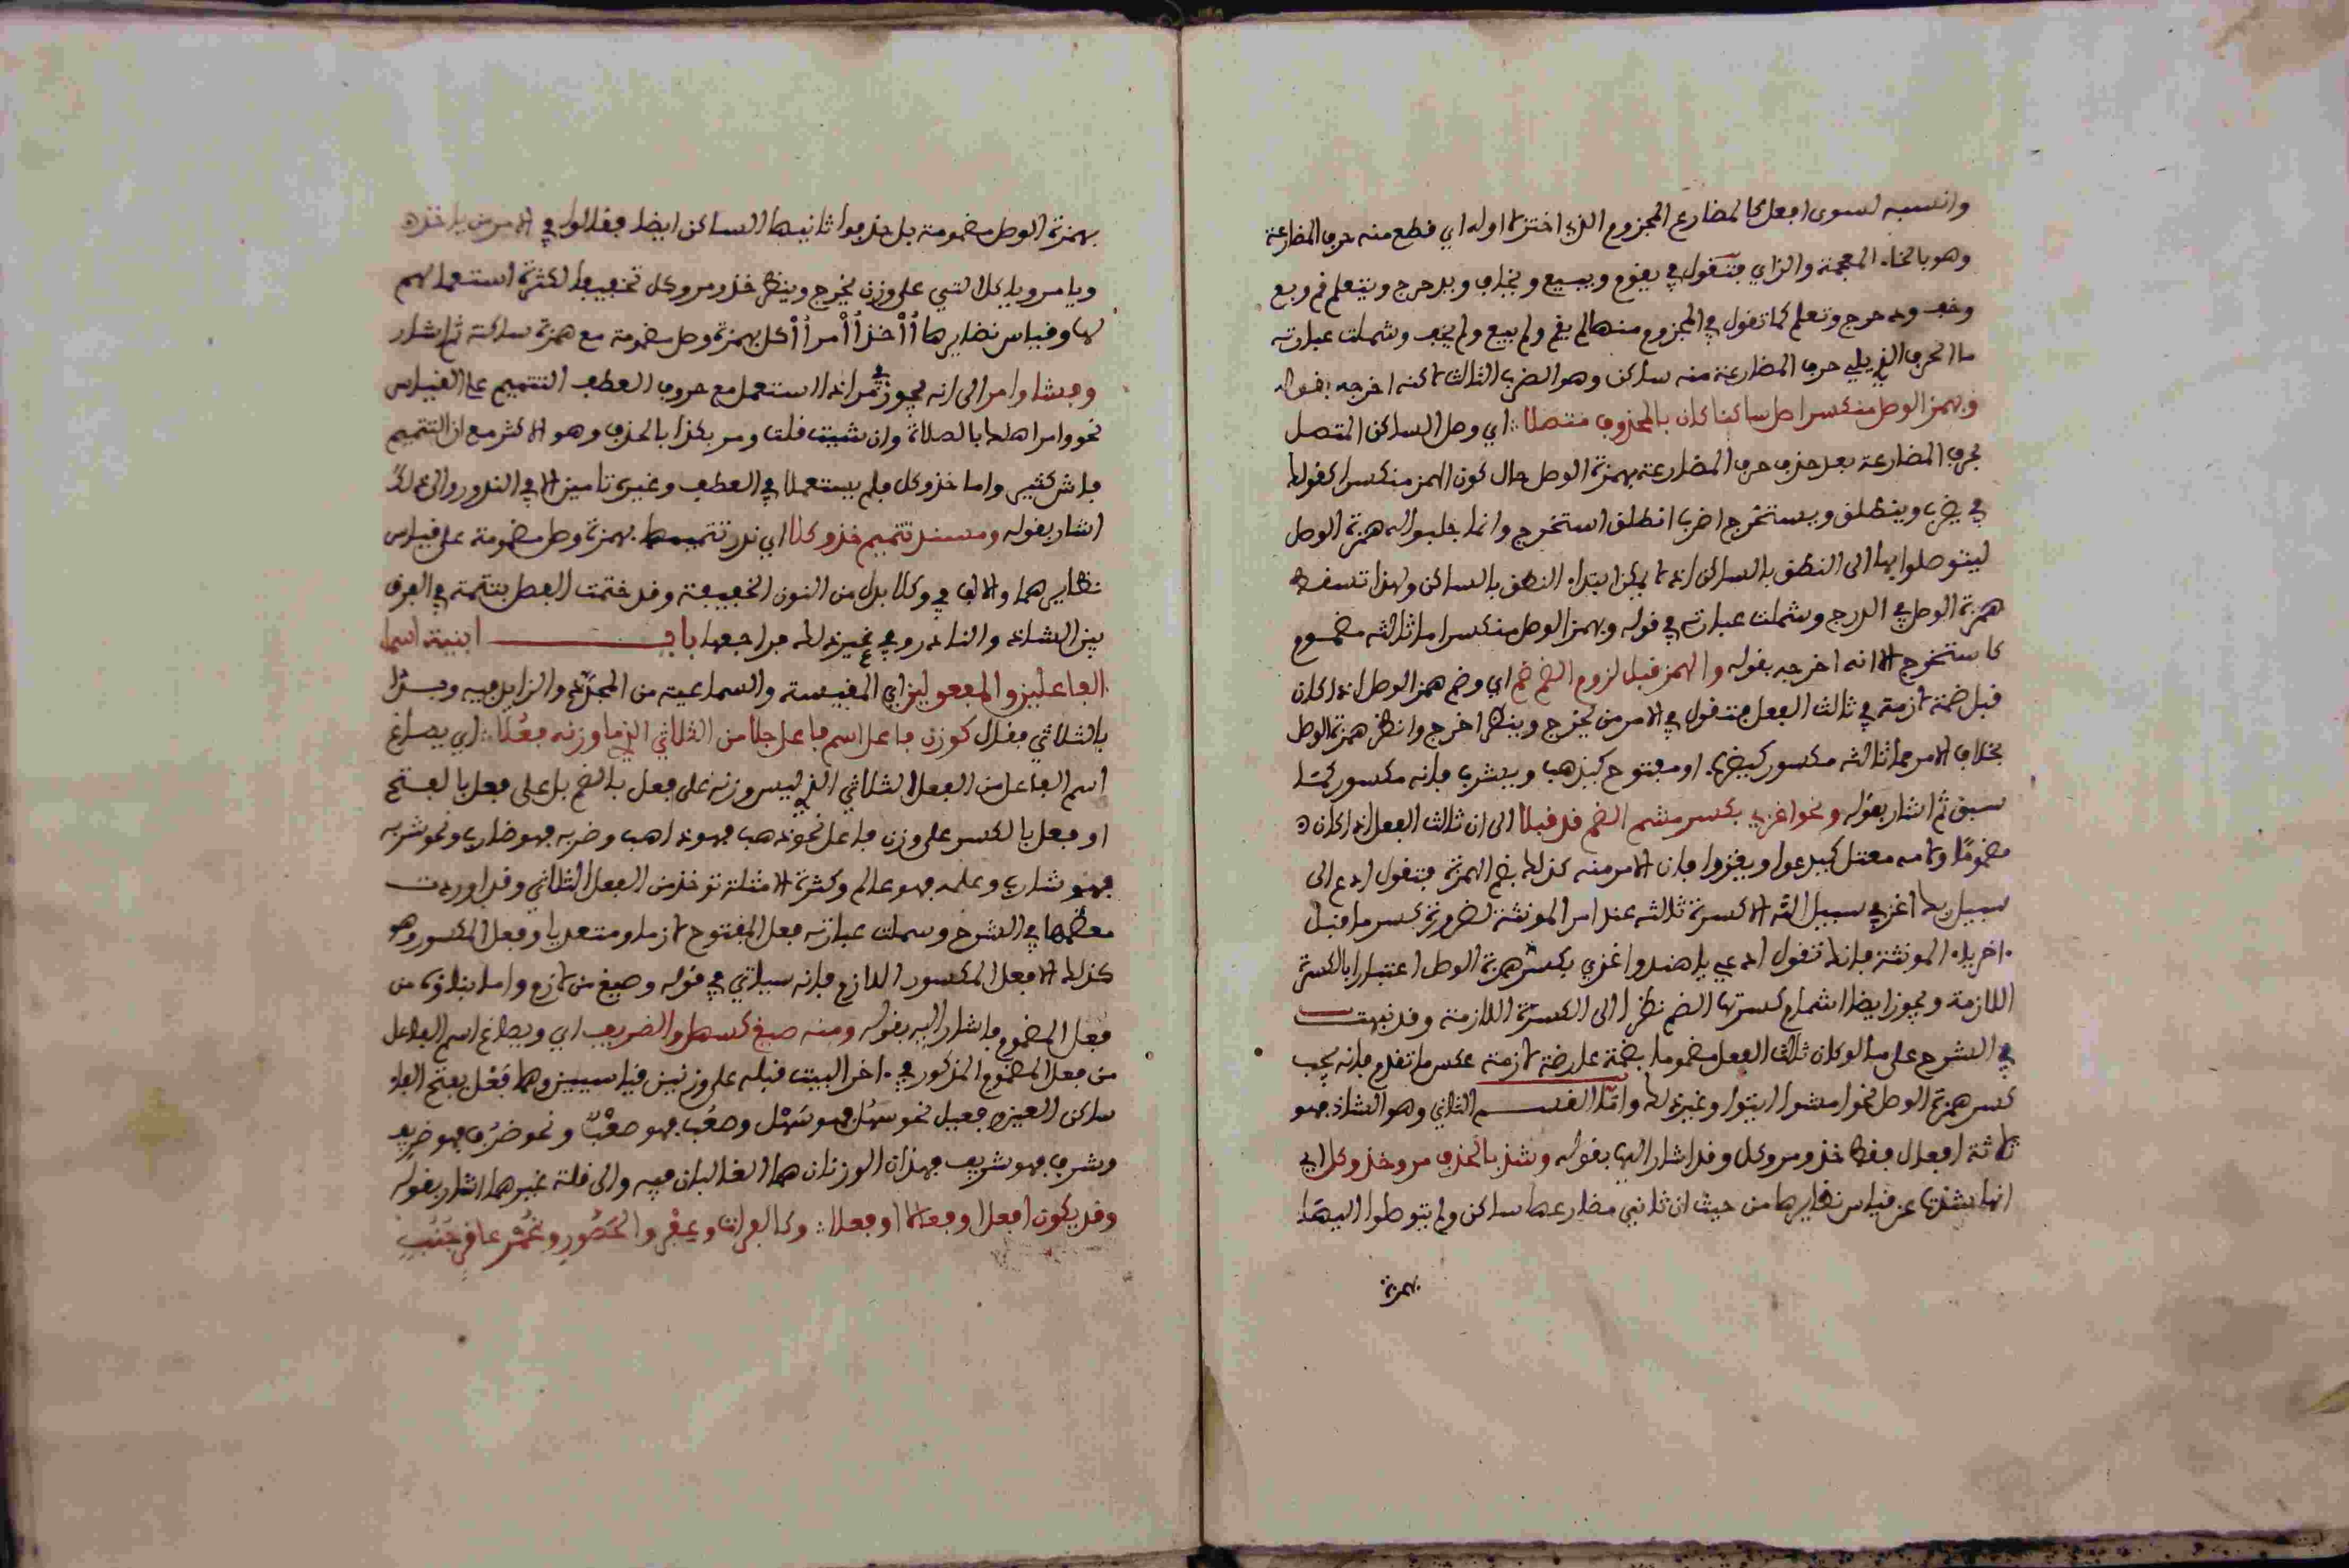 وانسبه لسوى افعل كالمضارع المجزوم الذي اختزلا اوله اي قطع منه حرف المضارعة
وهو بالخاء المعجمة والزاي فتقول في يقوم ويبيع ويخاف ويدحرج ويتعلم قم وبع
وخف ودحرج وتعلم كما تقول في المجزوم منها لم يقم ولم يبع ولم يخف وشملت عبارته
ما الحرف الذي يلي حرف المضارعة منه ساكن وهو الضرب الثالث لاكنه اخرجه بقوله
وبهمز الوصل منكسرا صل ساكنا كان بالمحذوف متصلا اي وصل الساكن المتصل
بحرف المضارعة بعد حذف حرف المضارعة بهمزة الوصل حال كون الهمز منكسرا كقولك
في يضرب وينطلق ويستخرج اضرب انطلق استخرج وانما جلبوا له همزة الوصل
ليتوصلوا بها الى النطق بالساكن اذ لا يمكن ابتداء النطق بالساكن ولهذا تسقط
همزة الوصل في الدرج وشملت عبارته في قوله وبهمز الوصل منكسرا ما ثالثه مضموم
كاستخرج الا انه اخرجه بقوله والهمز قبل لزوم الضم ضم اي وضم همز الوصل اذا كان
قبل ضمة لازمة في ثالث الفعل فتقول في الامر من يخرج وينظر اخرج وانظر همزة الوصل
بخلاف الامر مما ثالثه مكسور كيضرب او مفتوح كيذهب ويشرب فانه مكسور كما
سبق ثم اشار بقوله ونحو اغزي بكسر مشم الضم قد قبلا الى ان ثالث الفعل اذا كان
مضموما ولامه معتل كيدعوا ويغزوا فان الامر منه كذلك بضم الهمزة فتقول ادع الى
سبيل ربك اغز في سبيل الله الا كسرة ثالثه عند امر المونثة لضرورة كسر ما قبل
اخر ياء المونثة فانك تقول ادعي يا هند واغزي بكسر همزة الوصل اعتبارا بالكسرة
اللازمة ويجوز ايضا اشمام كسرتها الضم نظرا الى الكسرة اللازمة وقد نبهت
في الشرح على ما لو كان ثالث الفعل مضموما بضمة عارضة لازمة عكس ما تقدم فانه يجب
كسر همزة الوصل نحو امشوا ايتوا وغير ذلك واما القسم الثاني وهو الشاذ فهو
ثلاثة افعال فقط خذ ومر وكل وقد اشار اليها بقوله وشذ بالحذف مر وخذ وكل اي
انها بشذتها عن قياس نظايرها من حيث ان ثاني مضارعها ساكن ولم يتوصلوا اليها
بهمزة
بهمزة الوصل مضمومة بل حذفوا ثانيها الساكن ايضا فقالوا في الامر من ياخذ
ويامر وياكل التي على وزن يخرج وينظر خذ ومر وكل تخفيفا لكثرة استعمالهم
لها وقياس نضايرها أأخذ أأمر أأكل بهمزة وصل مضمومة مع همزة ساكنة ثم اشار
وفشا وامر الى انه يجوز في مر اذا استعمل مع حروف العطف التتميم على القياس
نحو وامر اهلك بالصلاة وان شيت قلت ومر بكذا بالحذف وهو الاكثر مع ان التتميم
فاش كثير واما خذ وكل فلم يستعملا في العطف وغيره تامين الا في الندور والى ذلك
اشار بقوله ومستندر تتميم خذ وكلا اي ندر تتميمهما بهمزة وصل مضمومة على قياس
نظايرهما والالف في وكلا بدل من النون الخفيفة وقد ختمت الفصل بتتمة في الفرق
بين الشاذ والنادر وفي غير ذلك فراجعها باب ابنية اسما
الفاعلين والمفعولين اي المقيسة والسماعية من المجرد والزايد فيه وبدا
بالثلاثي فقال كوزن فاعل اسم فاعل جلا من الثلاثي الذي ما وزنه فعلا اي يصاغ
اسم الفاعل من الفعل الثلاثي الذي ليس وزنه على فعل بالضم بل على فعل بالفتح
او فعل بالكسر على وزن فاعل نحو ذهب فهو ذاهب وضربه فهو ضارب ونحو شربه
فهو شارب وعلمه فهو عالم وكثرة الامثلة توخذ من الفعل الثلاثي وقد اوردت
معظمها في الشرح وشملت عبارته فعل المفتوح لازما ومتعديا وفعل المكسور وهو
كذلك الا فعل المكسور اللازم فانه سياتي في قوله وصيغ من لازم واما بناؤه من
فعل المضموم فاشار اليه بقوله ومنه صيغ كسهل والضريف اي ويصاغ اسم الفاعل
من فعل المضموم المذكور في اخر البيت قبله على وزنين قياسيين وهما فَعْل بفتح الفاء
ساكن العين وفعيل نحو سهُل فهو سَهْل وصعُب فهو صعْبٌ ونحو ضرُف فهو ضريف
وشرف فهو شريف فهذان الوزنان هما الغالبان فيه والى قلة غيرهما اشار بقوله
وقد يكون افعلا وفعالا او فعلا وكالفرات وعفر والحصور وغمر عاقر جنب